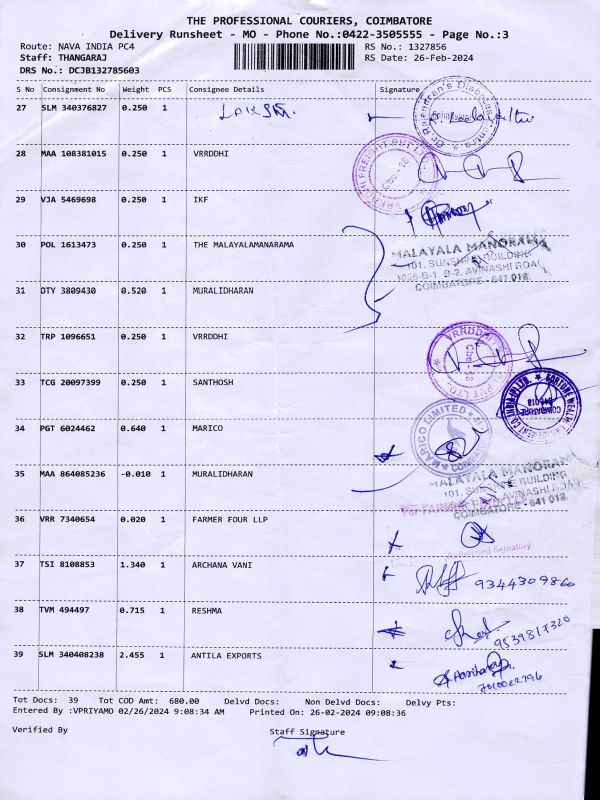 THE PROFESSIONAL COURIERS, COIMBATORE
Delivery Runsheet - MO - Phone No.:0422-3505555 - Page No.:3
Route: NAVA INDIA PC4 RS No.: 1327856
Staff: THANGARAJ RS Date: 26-Feb-2024
DRS No.: DCJB132785603
S No Consignment No Weight PCS Consignee Details Signature
27 SLM 340376827 0.250 1
28 MAA 108381015 0.250 1 VRRDDHI
29 VJA 5469698 0.250 1 IKF
30 POL 1613473 0.250 1 THE MALAYALAMANARAMA
MALAYALA MANORAMA
101, SUNSHINE BUILDING
1056-B-1, B-2, AVINASHI ROAD
COIMBATORE - 641 018.
31 DTY 3809430 0.520 1 MURALIDHARAN
32 TRP 1096651 0.250 1 VRRDDHI
33 TCG 20097399 0.250 1 SANTHOSH
34 PGT 6024462 0.640 1 MARICO
MARICO LIMITED
35 MAA 864085236 -0.010 1 MURALIDHARAN
MALAYALA MANORAMA
101, SUNSHINE BUILDING
AVINASHI ROAD
COIMBATORE - 641 018.
36 VRR 7340654 0.020 1 FARMER FOUR LLP
Authorised Signatory
37 TSI 8108853 1.340 1 ARCHANA VANI 9344309860
38 TVM 494497 0.715 1 RESHMA 9539817320
39 SLM 340408238 2.455 1 ANTILA EXPORTS
7010022796
Tot Docs: 39 Tot COD Amt: 680.00 Delvd Docs: Non Delvd Docs: Delvy Pts:
Entered By :VPRIYAMO 02/26/2024 9:08:34 AM Printed On: 26-02-2024 09:08:36
Verified By Staff Signature